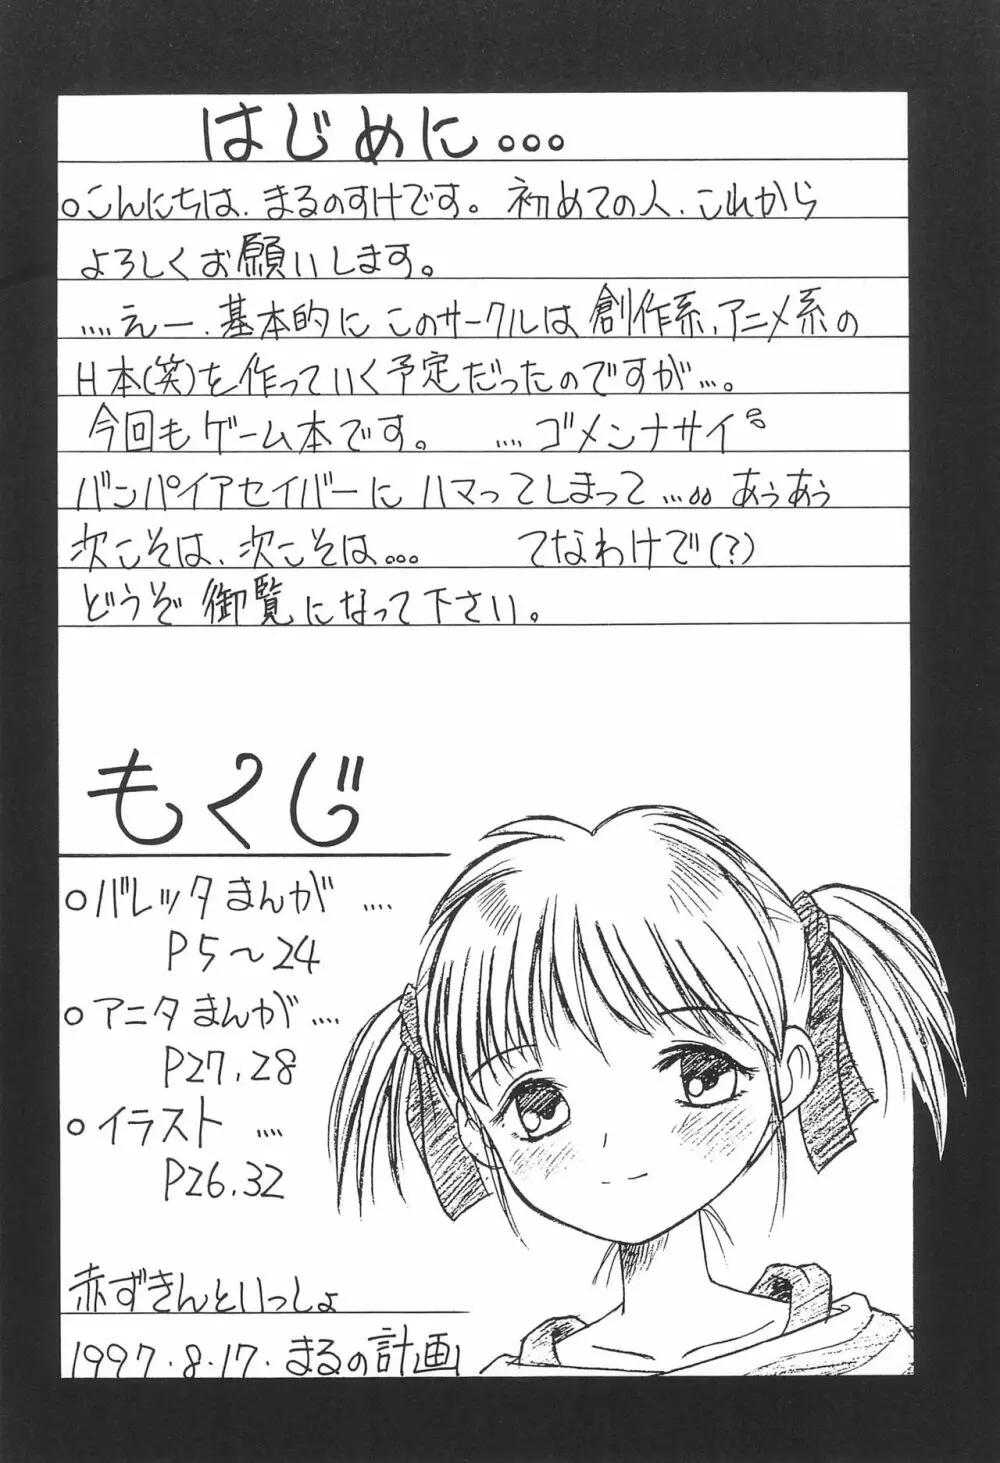 はじめに。。。
○こんにちは、まるのすけです。初めての人、これから
よろしくお願いします。
....えー、基本的にこのサークルは創作系、アニメ系の
H本(笑)を作っていく予定だったのですが...。
今回もゲーム本です。 ....ゴメンナサイ
バンパイアセイバーにハマってしまって...。。あぅあぅ
次こそは、次こそは。。。 てなわけで(?)
どうぞ御覧になって下さい。
もくじ
○バレッタまんが ....
P5〜24
○アニタまんが ....
P27,28
○イラスト ....
P26,32
赤ずきんといっしょ
1997・8・17・まるの計画